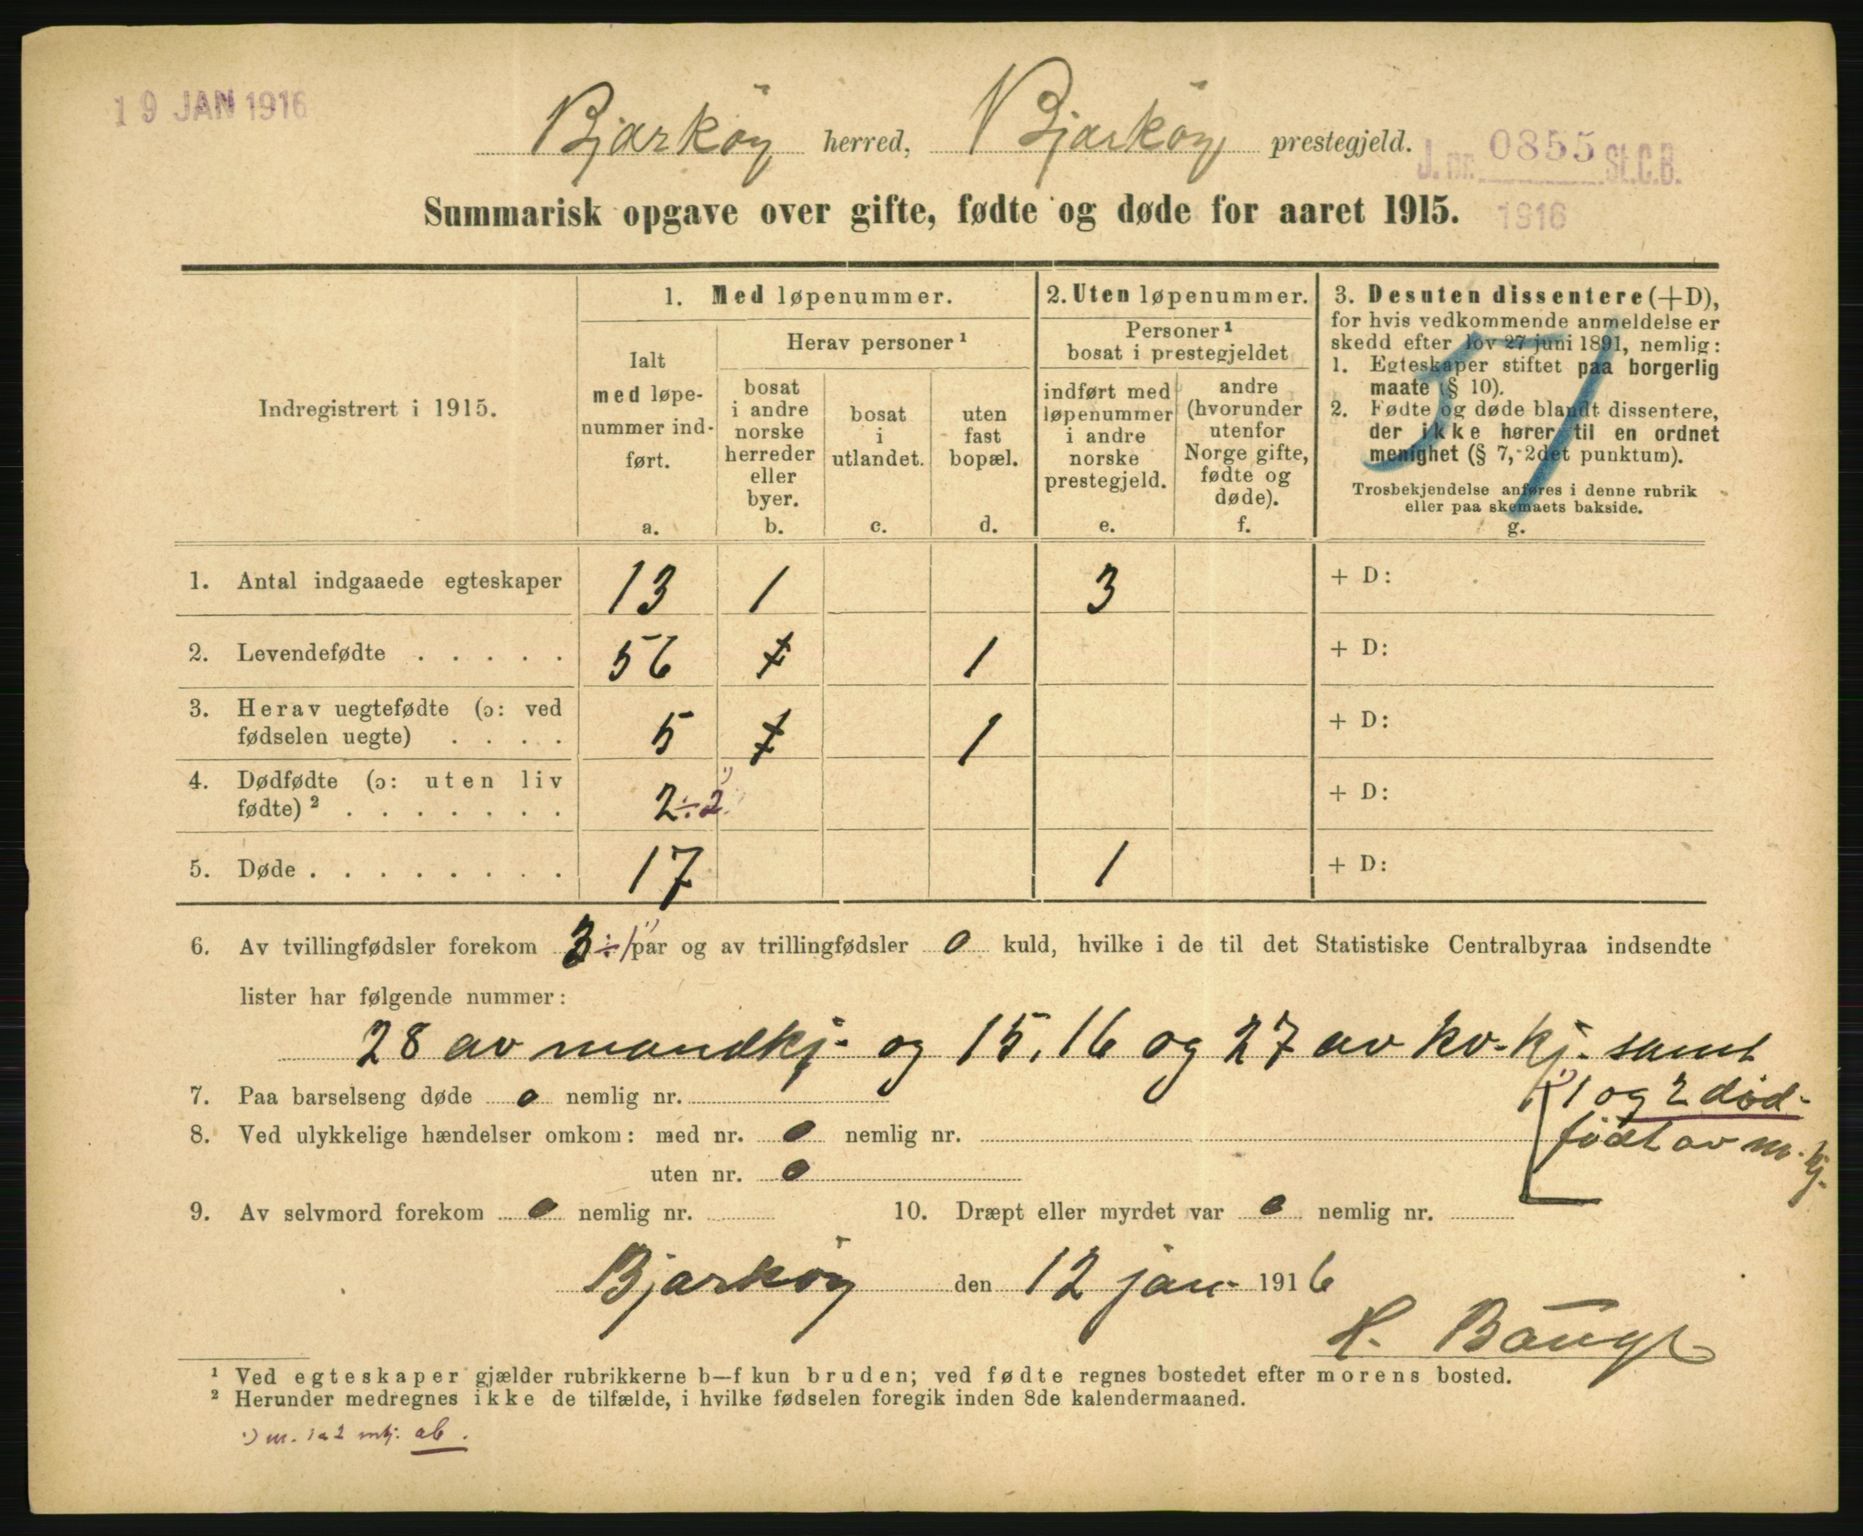 19 JAN 1916
Bjarköy herred, Bjarköy prestegjeld.
J. nr. 0855 St.C.B.
1916
Summarisk opgave over gifte, fødte og døde for aaret 1915.
Indregistrert i 1915.
1. Med løpenummer.
Ialt
med løpe-
nummer ind-
ført.
a.
Herav personer ¹
bosat
i andre
norske
herreder
eller
byer.
b.
bosat
i
utlandet.
c.
uten
fast
bopæl.
d.
2. Uten løpenummer.
Personer ¹
bosat i prestegjeldet
indført med
løpenummer
i andre
norske
prestegjeld.
e.
andre
(hvorunder
utenfor
Norge gifte,
fødte og
døde).
f.
3. Desuten dissentere (+D),
for hvis vedkommende anmeldelse er
skedd efter lov 27 juni 1891, nemlig:
1. Egteskaper stiftet paa borgerlig
maate (§ 10).
2. Fødte og døde blandt dissentere,
der ikke hører til en ordnet
menighet (§ 7, 2det punktum).
Trosbekjendelse anføres i denne rubrik
eller paa skemaets bakside.
g.
1. Antal indgaaede egteskaper 13 1 3 + D:
2. Levendefødte . . . . . 56 1 + D:
3. Herav uegtefødte (ɔ: ved
fødselen uegte) . . . . 5 1 + D:
4. Dødfødte (ɔ: uten liv
fødte) ² . . . . . . . 2 ÷ 2 + D:
5. Døde . . . . . . . . 17 1 + D:
6. Av tvillingfødsler forekom 3 ÷ 1 par og av trillingfødsler 0 kuld, hvilke i de til det Statistiske Centralbyraa indsendte
lister har følgende nummer:
28 av mandkj. og 15, 16 og 27 av kv. kj. samt
1 og 2 død-
født av m. kj.
7. Paa barselseng døde 0 nemlig nr.
8. Ved ulykkelige hændelser omkom: med nr. 0 nemlig nr.
uten nr. 0
9. Av selvmord forekom 0 nemlig nr. 10. Dræpt eller myrdet var 0 nemlig nr.
Bjarköy den 12 jan. 1916
¹ Ved egteskaper gjælder rubrikkerne b—f kun bruden; ved fødte regnes bostedet efter morens bosted.
² Herunder medregnes ikke de tilfælde, i hvilke fødselen foregik inden 8de kalendermaaned.
m. 1 a 2 mkj. ab.